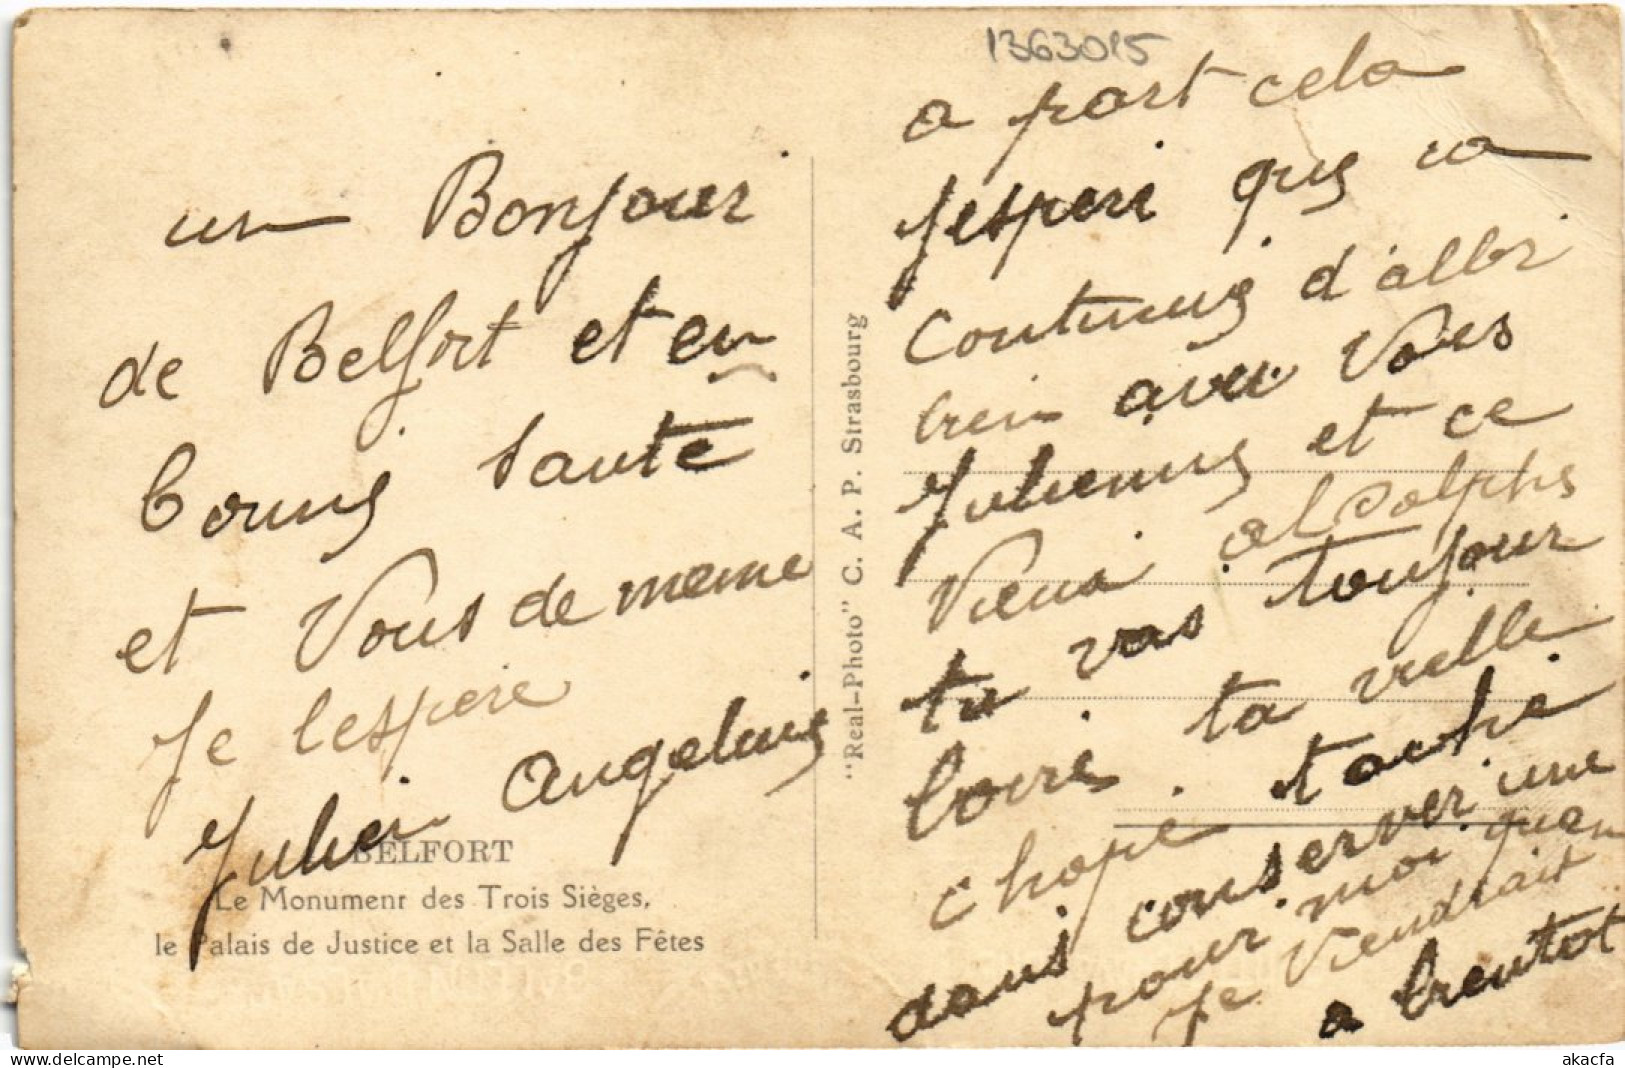 1363015
un Bonjour
de Belfort et en
bonne Sante
et Vous de meme
Je lespere
Julien Angeline
BELFORT
Le Monument des Trois Sièges,
le Palais de Justice et la Salle des Fêtes
"Real-Photo" C. A. P. Strasbourg
a part cela
Jespere que ca
Continue d'aller
bien avec Vous
Julienne et ce
Vieux aldolphe
tu vas toujour
boire ta vielle
chope. tache
dans conserver une
pour moi quan
Je Viendrait
a bientot
akacfa